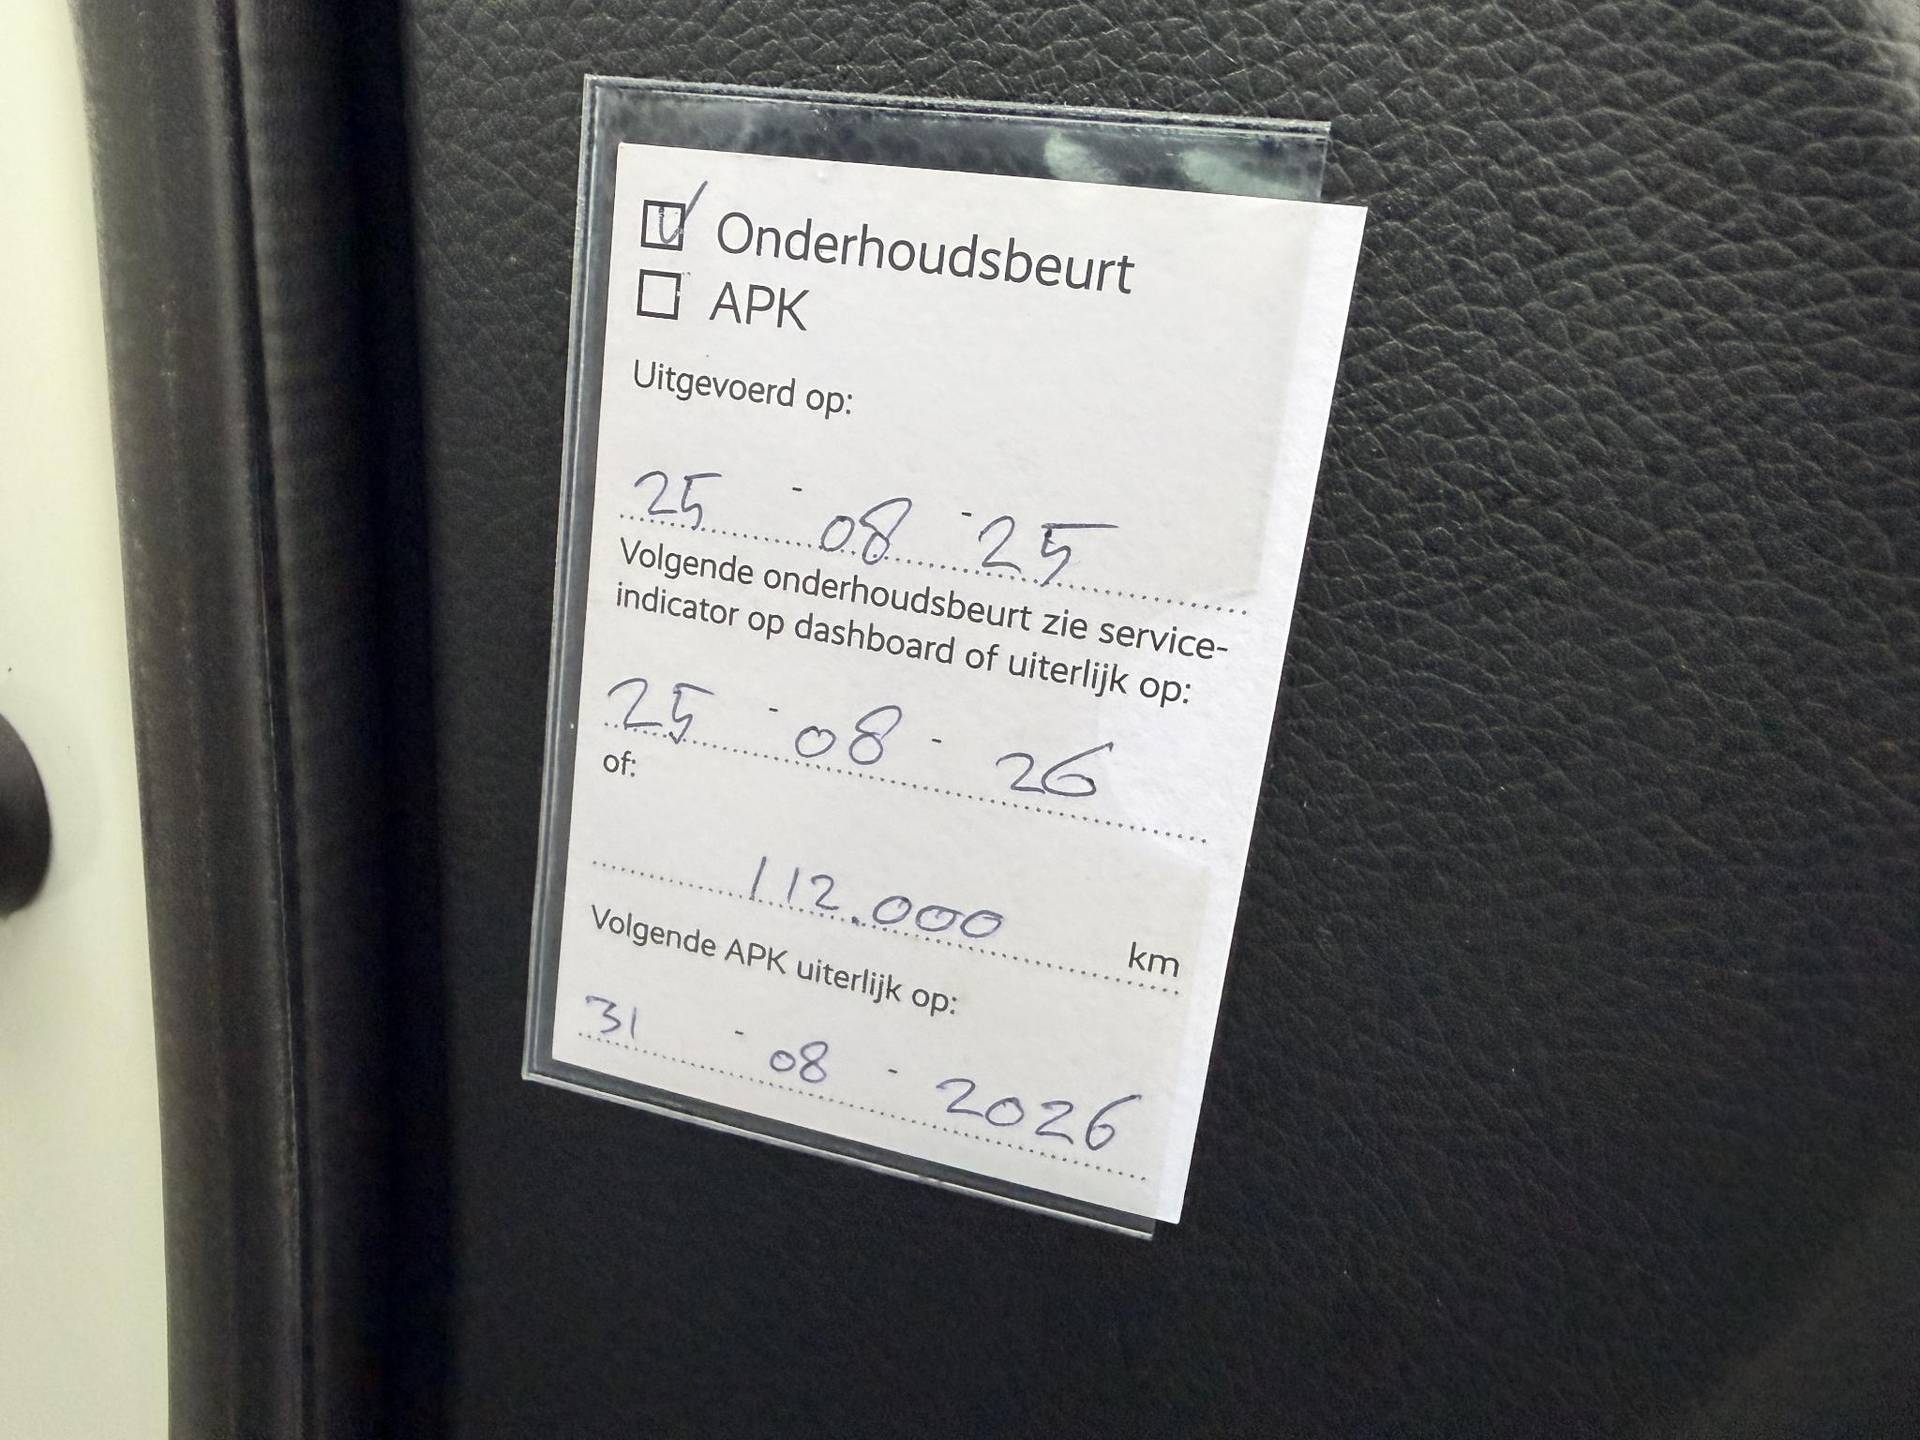 Onderhoudsbeurt
APK
Uitgevoerd op:
25 - 08 - 25
Volgende onderhoudsbeurt zie service-
indicator op dashboard of uiterlijk op:
25 - 08 - 26
of:
112.000 km
Volgende APK uiterlijk op:
31 - 08 - 2026